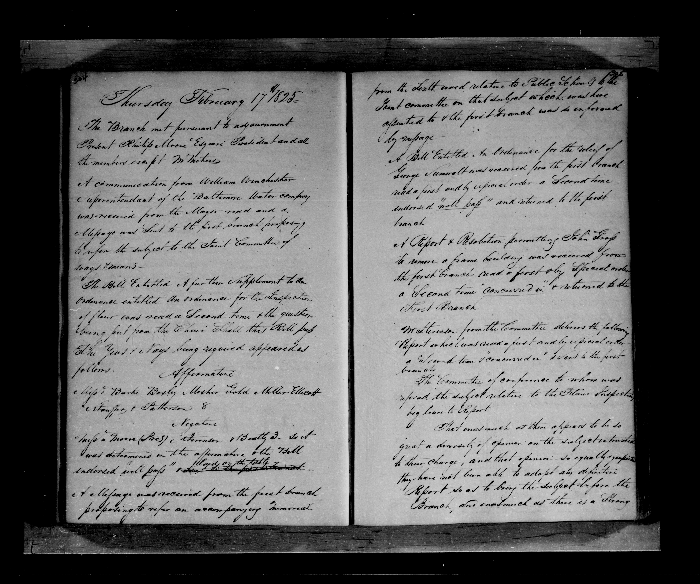 Thursday February 17th 1825
The Branch met pursuant to adjournment
Present Philip Moore Esquire President and all
the members except Mr
A communication from William Winchester
Superintendant of the Baltimore Water company
was received from the Mayor read and a
Message was sent to the first branch proposing
to refer the subject to the Joint Committee of
ways & means
The Bill Entitled A further Supplement to an
ordinance entitled An ordinance for the Inspection
of flour was read a Second time & the question
being put from the Chair Shall this Bill pass
The Yeas & Nays being required appeared as
follows
Affirmative
Messrs Barke Bosley Mosher Gold Miller Ellicott
Stansbury & Patterson 8
Negative
Messrs Moore (Prest) & 3. so it
was determined in the affirmative & the Bill
endorsed will pass"
A Message was received from the first branch
proposing to refer an accompanying memorial
from the Sixth ward relative to Public Schools to the
Joint committee on that subject which was
& the first branch was so informed
by message
A Bill Entitled An Ordinance for the relief of
George was received from the first branch
read a first and by especial order a Second time
endorsed "will pass" and returned to the first
branch
A Report & Resolution permitting John
to remove a frame building was received from
the first branch read a first & by Special order
a Second time concurred in & returned to the
First Branch
from the Committee delivered the following
Report which was read a first and by especial order
a Second time & concurred in & sent to the first
branch
The Committee of conference to whom was
referred the subject relative to the Flour Inspection
beg leave to Report
That inasmuch as there appears to be so
great a diversity of opinion on the subject entrusted
to their charge, and that opinion so equally
they have not been able to adopt any definite
Report so as to bring the subject before the
Branch, and inasmuch as there is a Strong